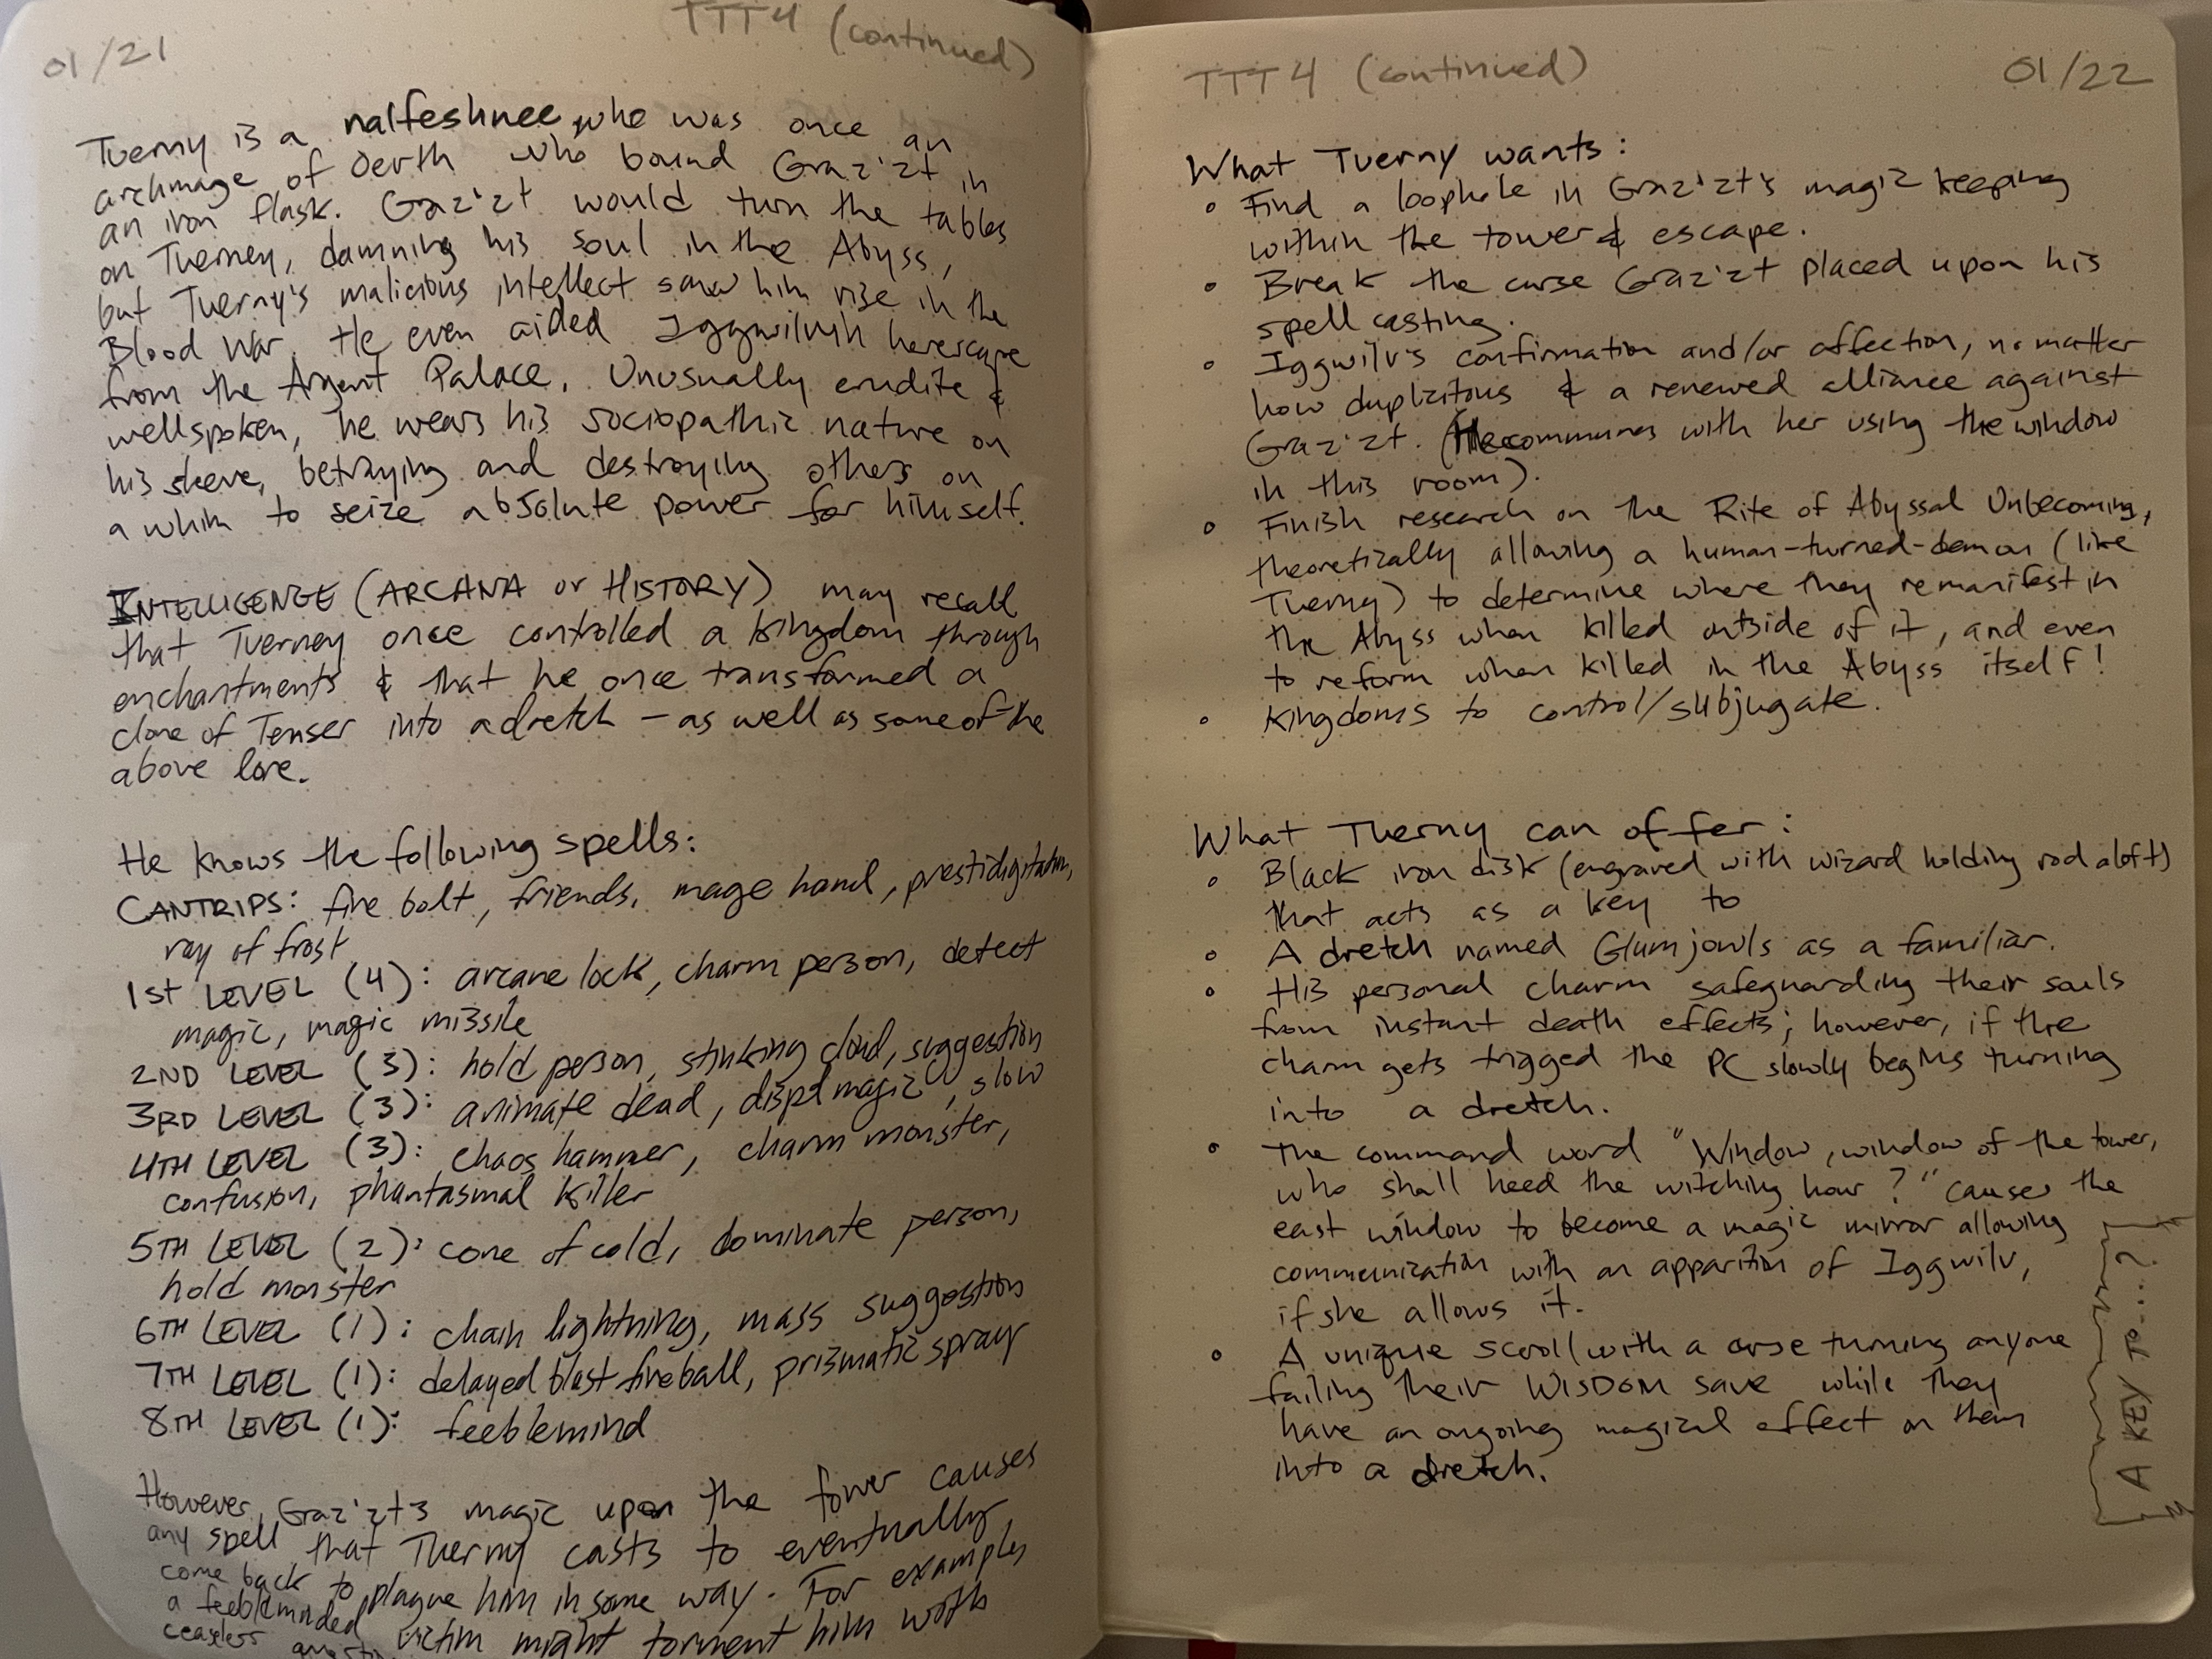 01/21
TTT4 (continued)
Tuerny is a nalfeshnee who was once an
archmage of Oerth who bound Graz'zt in
an iron flask. Graz'zt would turn the tables
on Tuerney, damning his soul in the Abyss,
but Tuerny's malicious intellect saw him rise in the
Blood War. He even aided Iggwilv in her escape
from the Argent Palace. Unusually erudite &
wellspoken, he wears his sociopathic nature on
his sleeve, betraying and destroying others on
a whim to seize absolute power for himself.
INTELLIGENCE (ARCANA or HISTORY) may recall
that Tuerney once controlled a kingdom through
enchantments & that he once transformed a
clone of Tenser into a dretch – as well as some of the
above lore.
He knows the following spells:
CANTRIPS: fire bolt, friends, mage hand, prestidigitation,
ray of frost
1ST LEVEL (4): arcane lock, charm person, detect
magic, magic missile
2ND LEVEL (3): hold person, stinking cloud, suggestion
3RD LEVEL (3): animate dead, dispel magic, slow
4TH LEVEL (3): chaos hammer, charm monster,
confusion, phantasmal killer
5TH LEVEL (2): cone of cold, dominate person,
hold monster
6TH LEVEL (1): chain lightning, mass suggestion
7TH LEVEL (1): delayed blast fireball, prismatic spray
8TH LEVEL (1): feeblemind
However, Graz'zt's magic upon the tower causes
any spell that Tuerny casts to eventually
come back to plague him in some way. For examples
a feebleminded victim might torment him with
ceaseless
TTT4 (continued)
01/22
What Tuerny wants:
◦ Find a loophole in Graz'zt's magic keeping
within the tower & escape.
◦ Break the curse Graz'zt placed upon his
spell casting.
◦ Iggwilv's confirmation and/or affection, no matter
how duplicitous & a renewed alliance against
Graz'zt. (He communes with her using the window
in this room).
◦ Finish research on the Rite of Abyssal Unbecoming,
theoretically allowing a human-turned-demon (like
Tuerny) to determine where they remanifest in
the Abyss when killed outside of it, and even
to reform when killed in the Abyss itself!
◦ Kingdoms to control/subjugate.
What Tuerny can offer:
◦ Black iron disk (engraved with wizard holding rod aloft)
that acts as a key to
◦ A dretch named Glumjowls as a familiar.
◦ His personal charm safeguarding their souls
from instant death effects; however, if the
charm gets trigged the PC slowly begins turning
into a dretch.
◦ The command word "Window, window of the tower,
who shall heed the witching hour?" causes the
east window to become a magic mirror allowing
communication with an apparition of Iggwilv,
if she allows it.
◦ A unique scroll with a curse turning anyone
failing their WISDOM save while they
have an ongoing magical effect on them
into a dretch.
[A KEY TO...?]